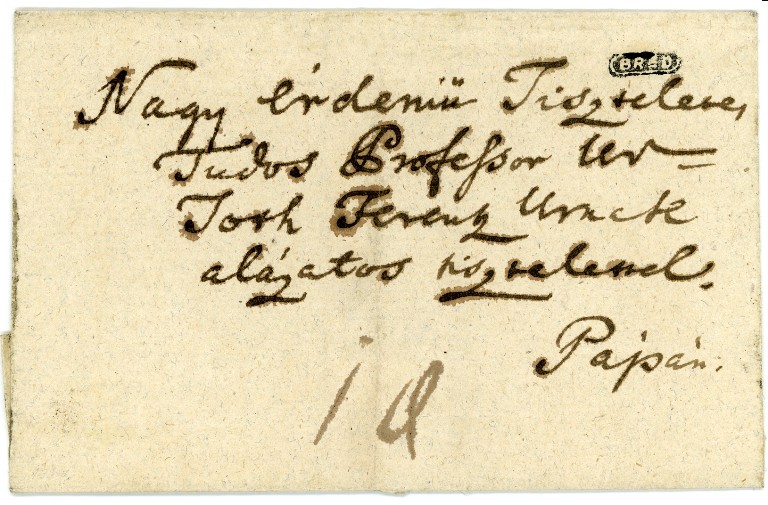 BRÉD
Nagy érdemü Tiszteletes,
Tudos Professor Ur-
Toth Ferentz Urnak
alázatos tisztelettel.
Pápán.